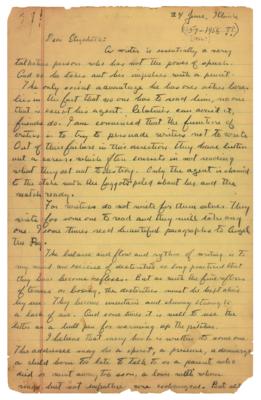 24 June, Illinois
Dear Elizabeth:
A writer is essentially a very
talkative person who has not the power of speech.
And so he takes out his impulses with a pencil.
The only social advantage he has over other bores
lies in the fact that no one has to read him, no one
that is except his agent. Relatives can avoid it,
friends do. I am convinced that the function of
critics is to try to persuade writers not to write.
Out of their failure in this direction they have built
out a career which often consists in not reading
what they set out to destroy. Only the agent is chained
to the stake with the faggots piled about his and the
match ready.
For writers do not write for themselves. They
write for some one to read and they will take any
one. Some times read beautiful paragraphs to Angel
the Dog.
The balance and flow and rhythm of writing is to
my mind an exercise of dexterities so long practiced that
they have become reflexes. But as with the fine reflexes
of tennis or boxing, the dexterities must be kept alive
by use. They become uncertain and clumsy through
a lack of use. And some times it is well to use the
letter as a bull pen for warming up the pitcher.
I believe that every book is written to some one
The addressee may be a spirit, a presence, a
a child born too late to talk to or a parent who
died or went away too soon, a love with whom
rings but not signature were exchanged. But all